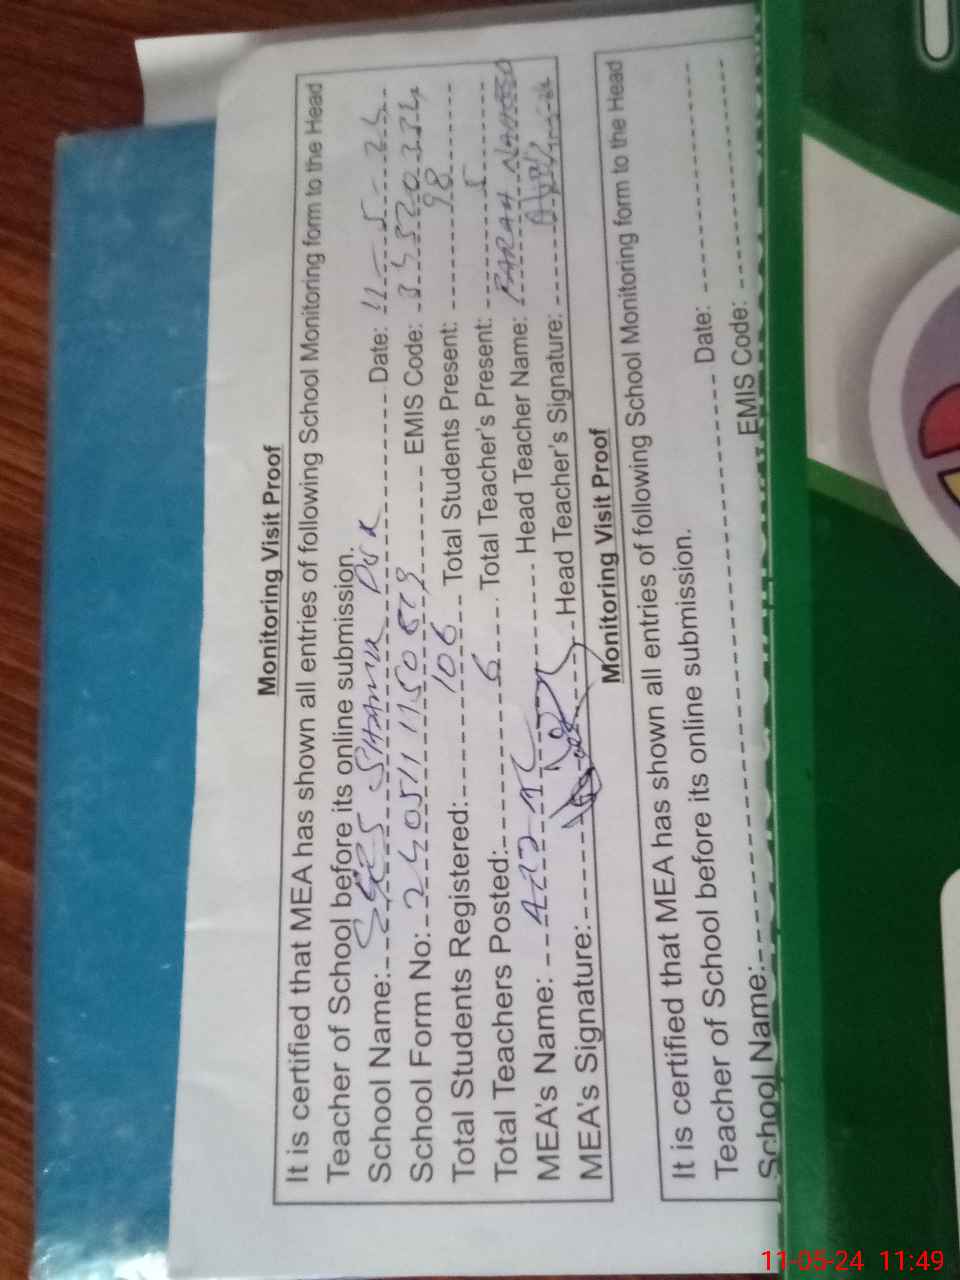 Monitoring Visit Proof
It is certified that MEA has shown all entries of following School Monitoring form to the Head
Teacher of School before its online submission.
School Name: Date: 11-5-24
School Form No: EMIS Code:
Total Students Registered: 106 Total Students Present: 98
Total Teachers Posted: 6 Total Teacher's Present: 5
MEA's Name: Head Teacher Name: FARAH
MEA's Signature: Head Teacher's Signature:
Monitoring Visit Proof
It is certified that MEA has shown all entries of following School Monitoring form to the Head
Teacher of School before its online submission.
School Name: Date:
EMIS Code:
11-05-24 11:49